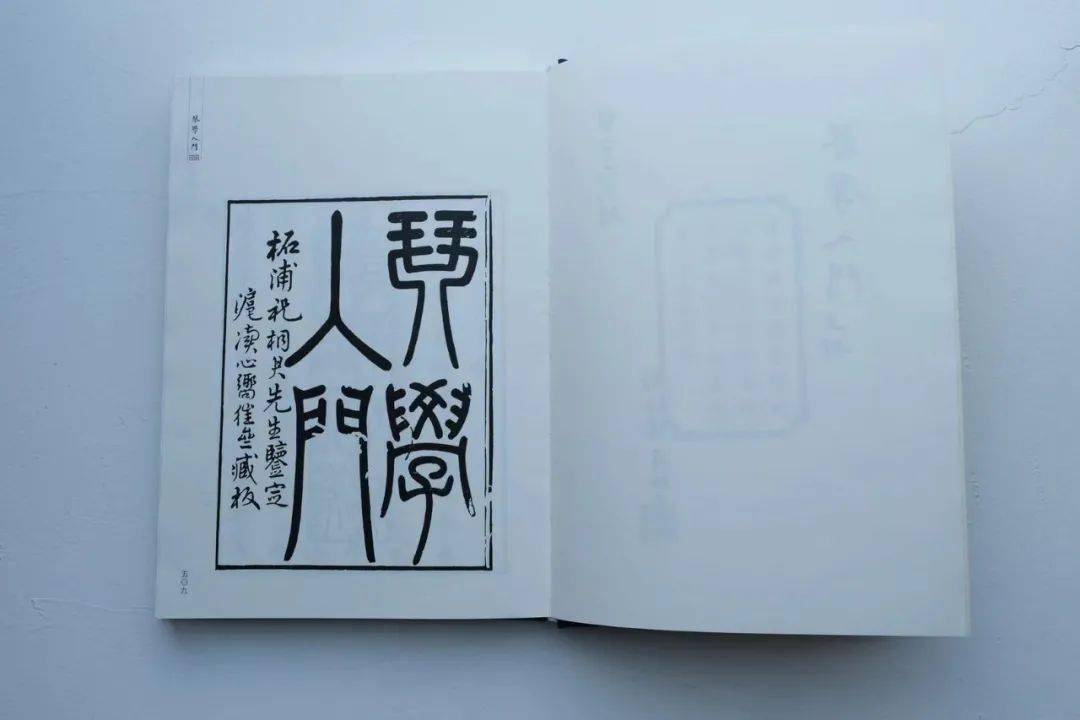 琴學
入門
柘浦祝桐君先生鑒定
滬瀆心嚮徃亝藏板
琴學入門
五〇九